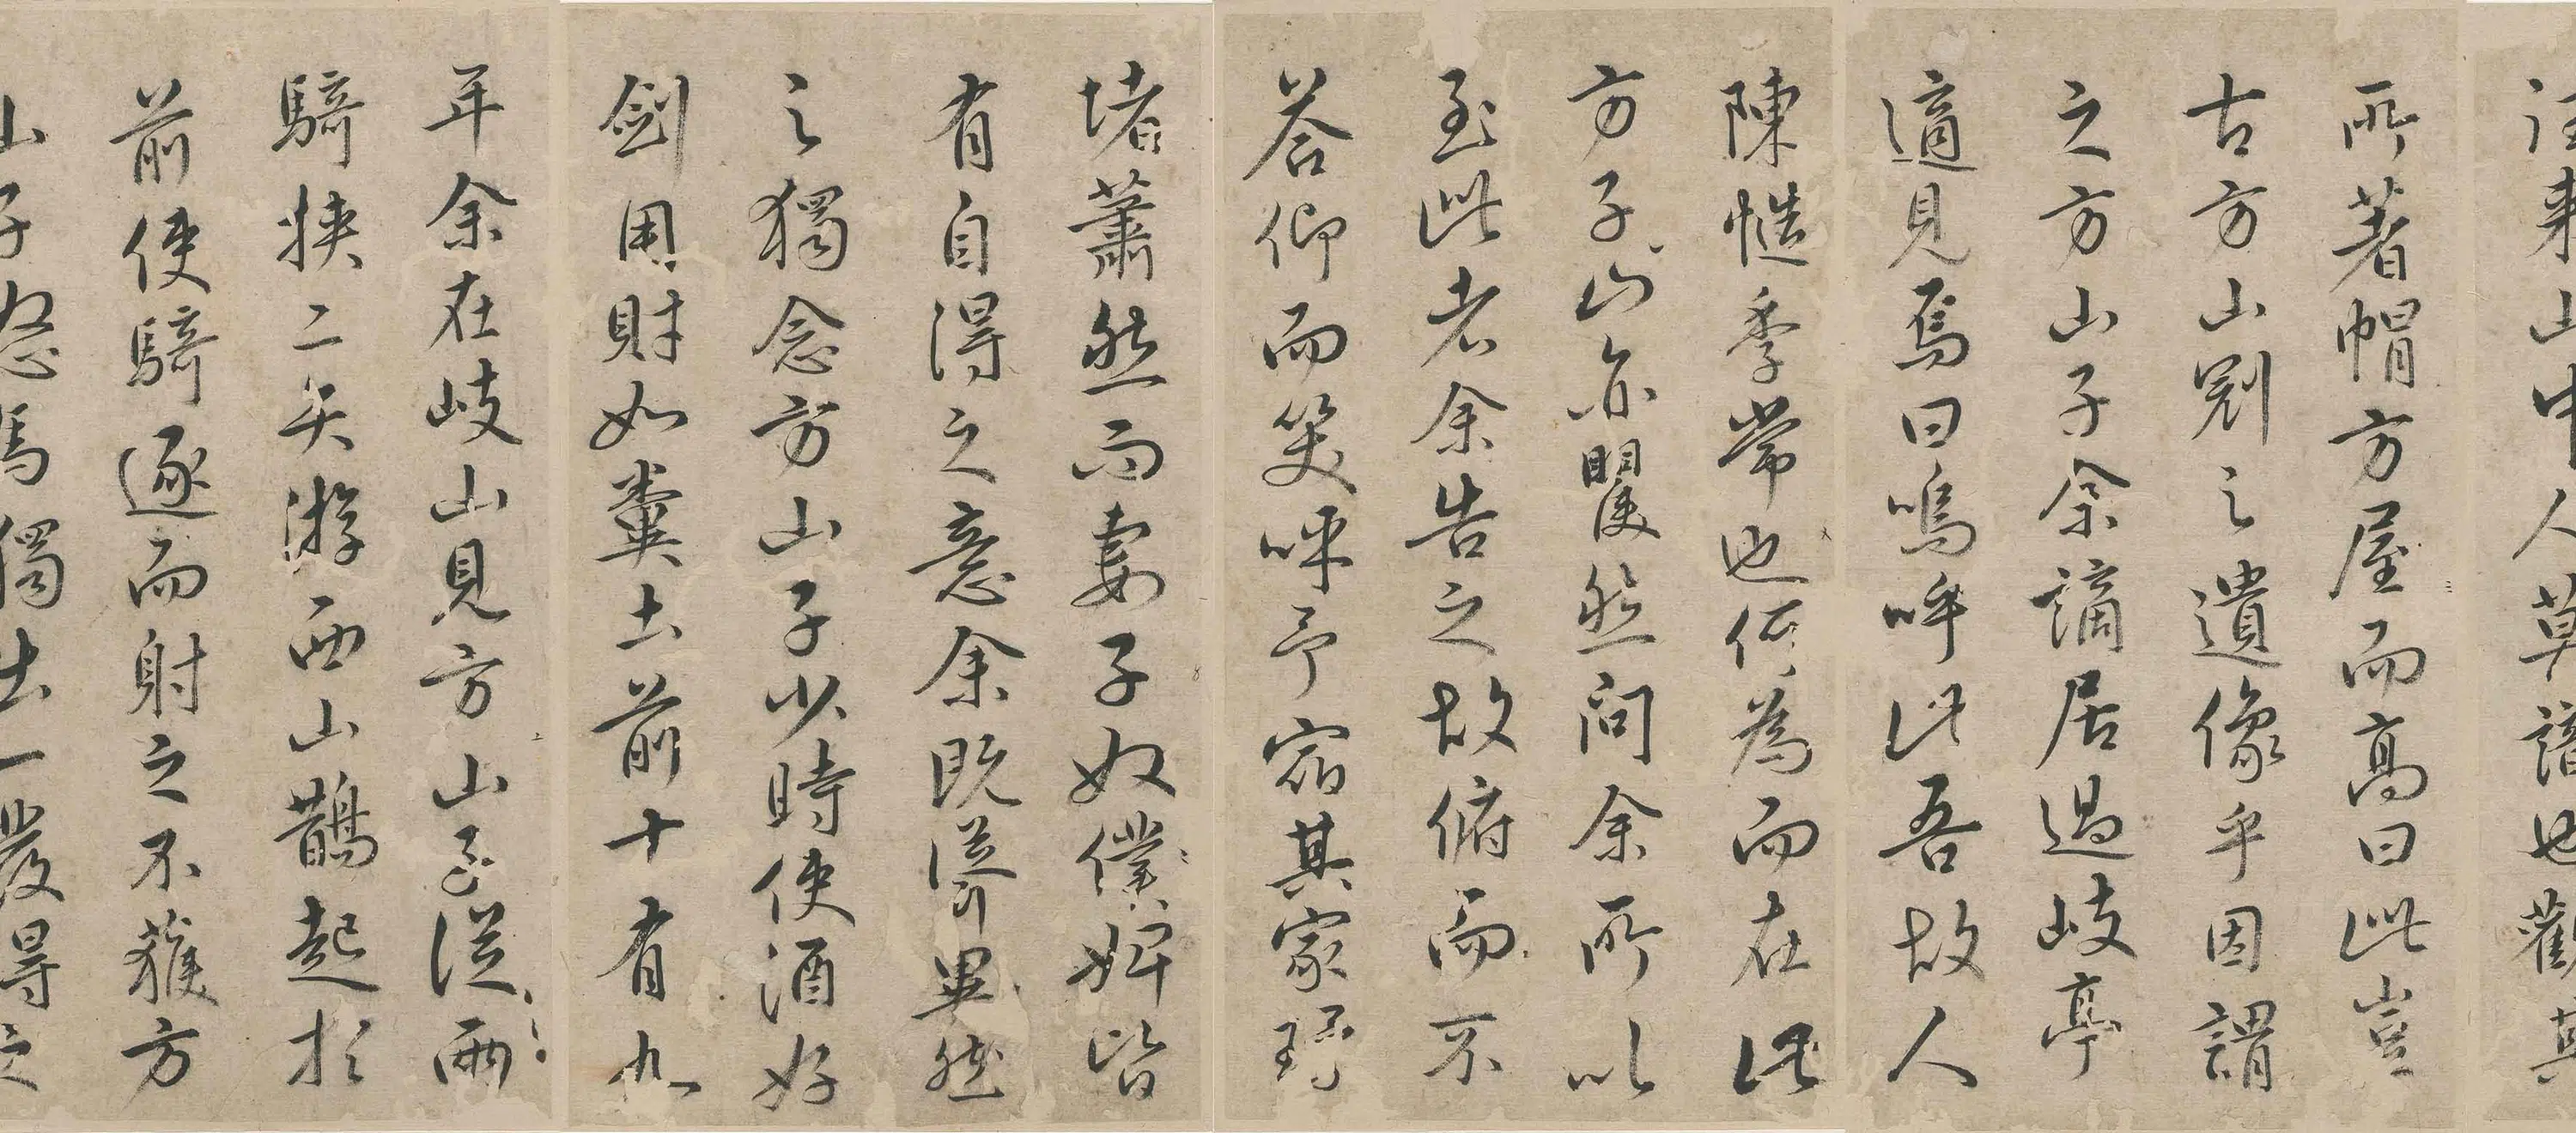 往来山中人莫識也觀其
所著帽方屋而高曰此豈
古方山冠之遺像乎因謂
之方山子余謫居過岐亭
適見焉曰嗚呼此吾故人
陳慥季常也何為而在此
方子山亦矍然問余所以
至此者余告之故俯而不
答仰而笑呼予宿其家環
堵蕭然而妻子奴僕婢皆
有自得之意余既聳異然
之獨念方山子少時使酒好
劍用財如糞土前十有九
年余在岐山見方山子從兩
騎挾二矢游西山鵲起於
前使騎逐而射之不獲方
山子怒馬獨出一發得之